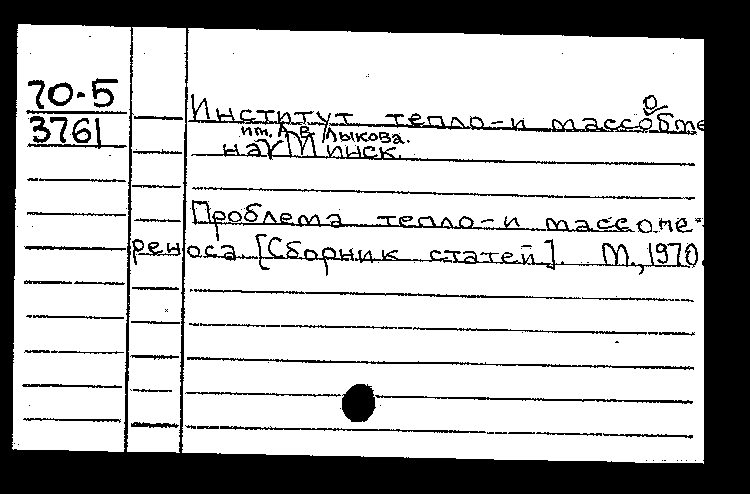 70-5
3761
Институт тепло-и массообме
на им. А. В. Лыкова. Минск.
Проблема тепло-и массопе-
реноса. [Сборник статей]. М., 1970.